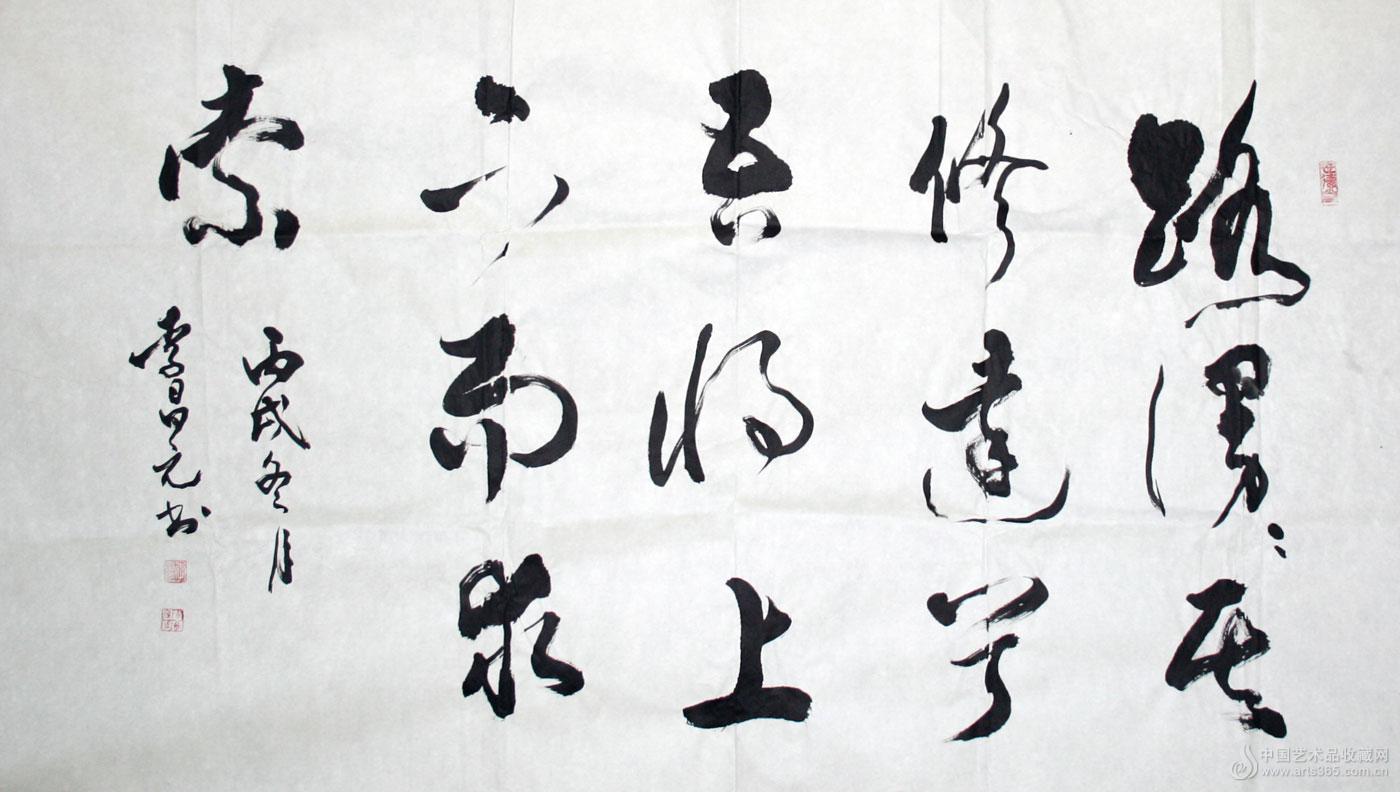 路漫〻其
修远兮
吾将上
下而求
索
丙戌冬月
李昌元书
中国艺术品收藏网
www.arts365.com.cn